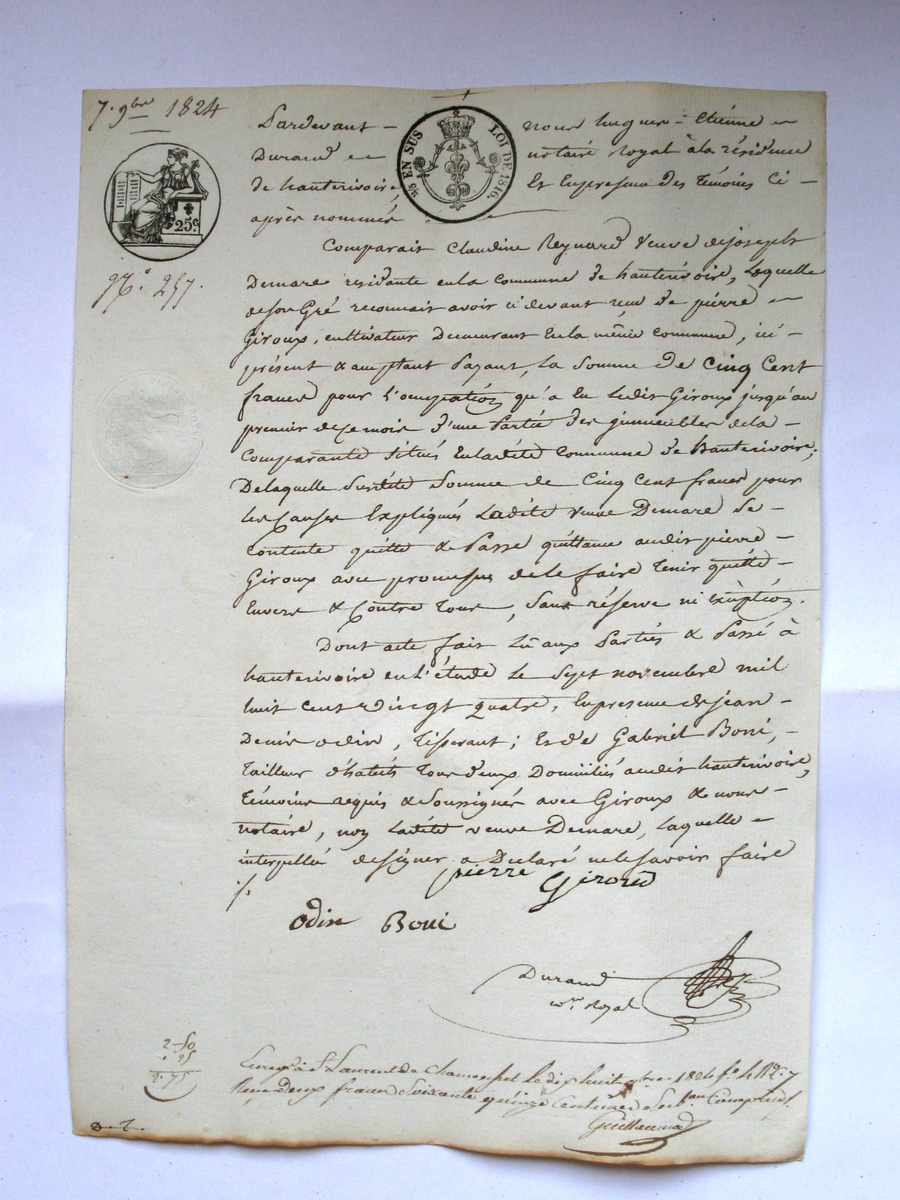 7. 9bre 1824
Pardevant nous hugues - Etiénne
Durand notaire Royal à la résidence
de hauterivoire, Et En presence Des témoins Ci -
après nommés
⅒ EN SUS LOI DE 1816.
25c
No. 257.
Comparait Claudine Reynard veuve de joseph
Demare résidante en la Commune de hauterivoire, Laquelle
de son Gré reconnait avoir ci devant reçu de pierre
Giroux, cultivateur Demeurant En la même commune, ici -
présent & acceptant Payant, La Somme De Cinq Cent
francs pour L'occupation qu'a Eu Ledit Giroux jusqu'au
premier de Ce mois d'une Partie des immeubles de la
Comparante Situés En ladite Commune de Hauterivoire;
De laquelle Susdite Somme de Cinq Cent francs pour
les Causes Expliqués Ladite veuve Demare Se -
Contente quitte & Passe quittance audit pierre -
Giroux avec promesse de le faire tenir quitte -
Envers & Contre tous, Sans réserve ni Exception.
Dont acte fait Lu aux Parties & Passé à
hauterivoire en L'étude Le Sept novembre mil
huit Cent vingt quatre, En presence de jean -
Denis odin, tisserant; Et de Gabriel Boni, -
tailleur d'habits tous deux Domiciliés audit hauterivoire,
témoins requis & Soussignés avec Giroux & nous -
notaire, non Ladite veuve Demare, Laquelle -
interpellée de signer a Declaré ne le savoir faire
pierre Girord
odin Boni
Durand
nre Royal
2-50
. 25
2.75
Enregé à St Laurent de Chamousset le dix huit 9bre 1824 fo. 4 Ro C. 7
Reçu Deux francs Soixante quinze Centimes Subon Comprise.
Guillaumod
D. T.